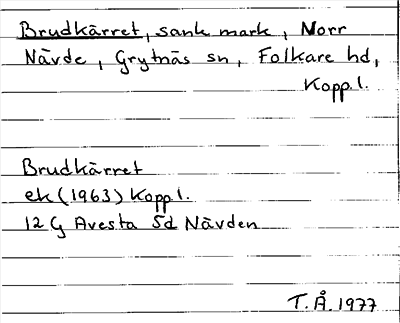 Brudkärret, sank mark, Norr
Nävde, Grytnäs sn, Folkare hd,
Koppl.
Brudkärret
ek (1963) Koppl.
12 G Avesta 5d Nävden
T.Å. 1977